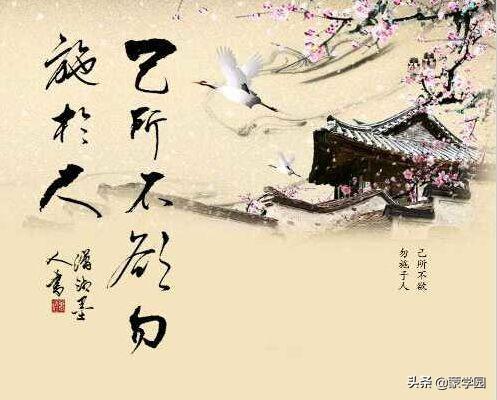 己所不欲勿
施於人
瀟湘墨
人書
己所不欲
勿施于人
头条 @蒙学园